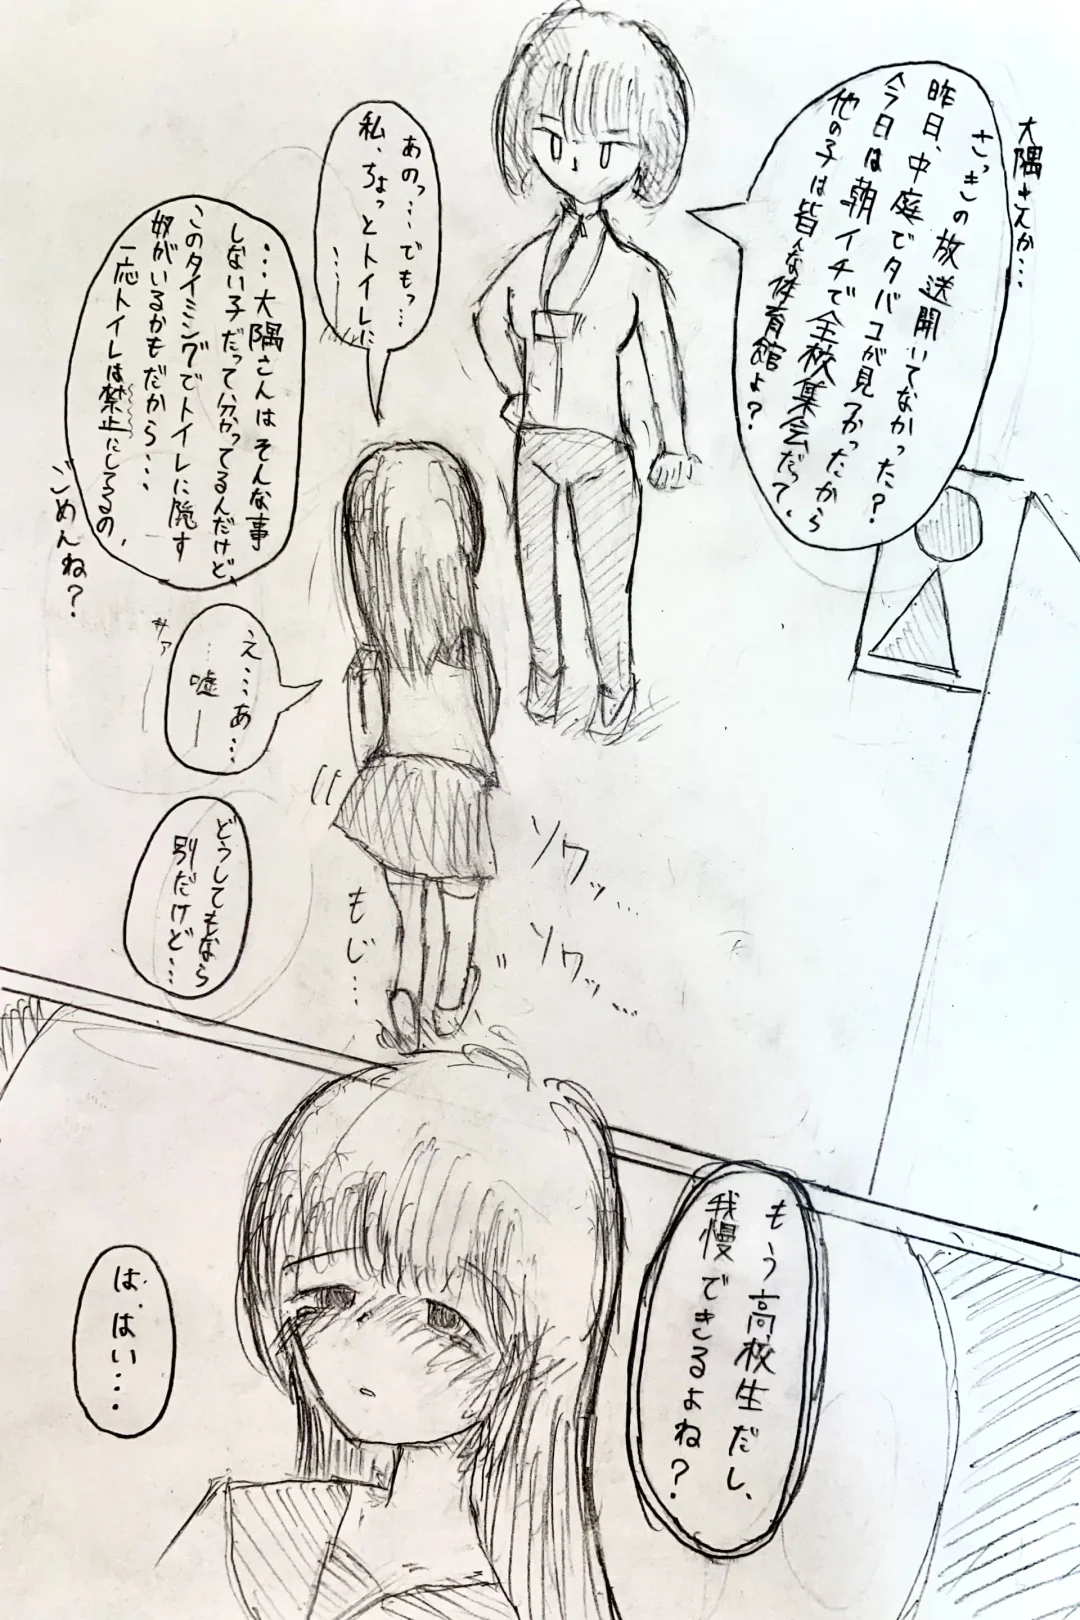 大隅さんか…
さっきの放送聞いてなかった？
昨日、中庭でタバコが見つかったから
今日は朝イチで全校集会だって、
他の子は皆んな体育館よ？
あのっ…でもっ…
私、ちょっとトイレに
……
…大隅さんはそんな事
しない子だって分かってるんだけど、
このタイミングでトイレに隠す
奴がいるかもだから…
一応トイレは禁止にしてるの、
ごめんね？
サァ
え…あ…
…嘘―
どうしてもなら
別だけど…
ソワッ…
ソワッ…
もじ…
もう高校生だし、
我慢できるよね？
は、はい…